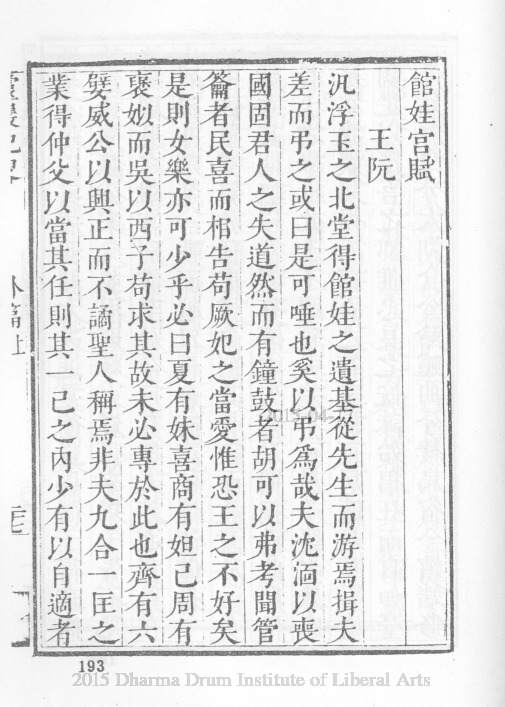 館娃宮賦
王阮
汎浮玉之北堂得館娃之遺基從先生而游焉揖夫
差而弔之或曰是可唾也奚以弔爲哉夫沈湎以喪
國固君人之失道然而有鐘鼓者胡可以弗考聞管
籥者民喜而相告苟厥妃之當愛惟恐王之不好矣
是則女樂亦可少乎必曰夏有妹喜商有妲己周有
襃姒而吳以西子苟求其故未必專於此也齊有六
嬖威公以興正而不譎聖人稱焉非夫九合一匡之
業得仲父以當其任則其一己之內少有以自適者
193
2015 Dharma Drum Institute of Liberal Arts